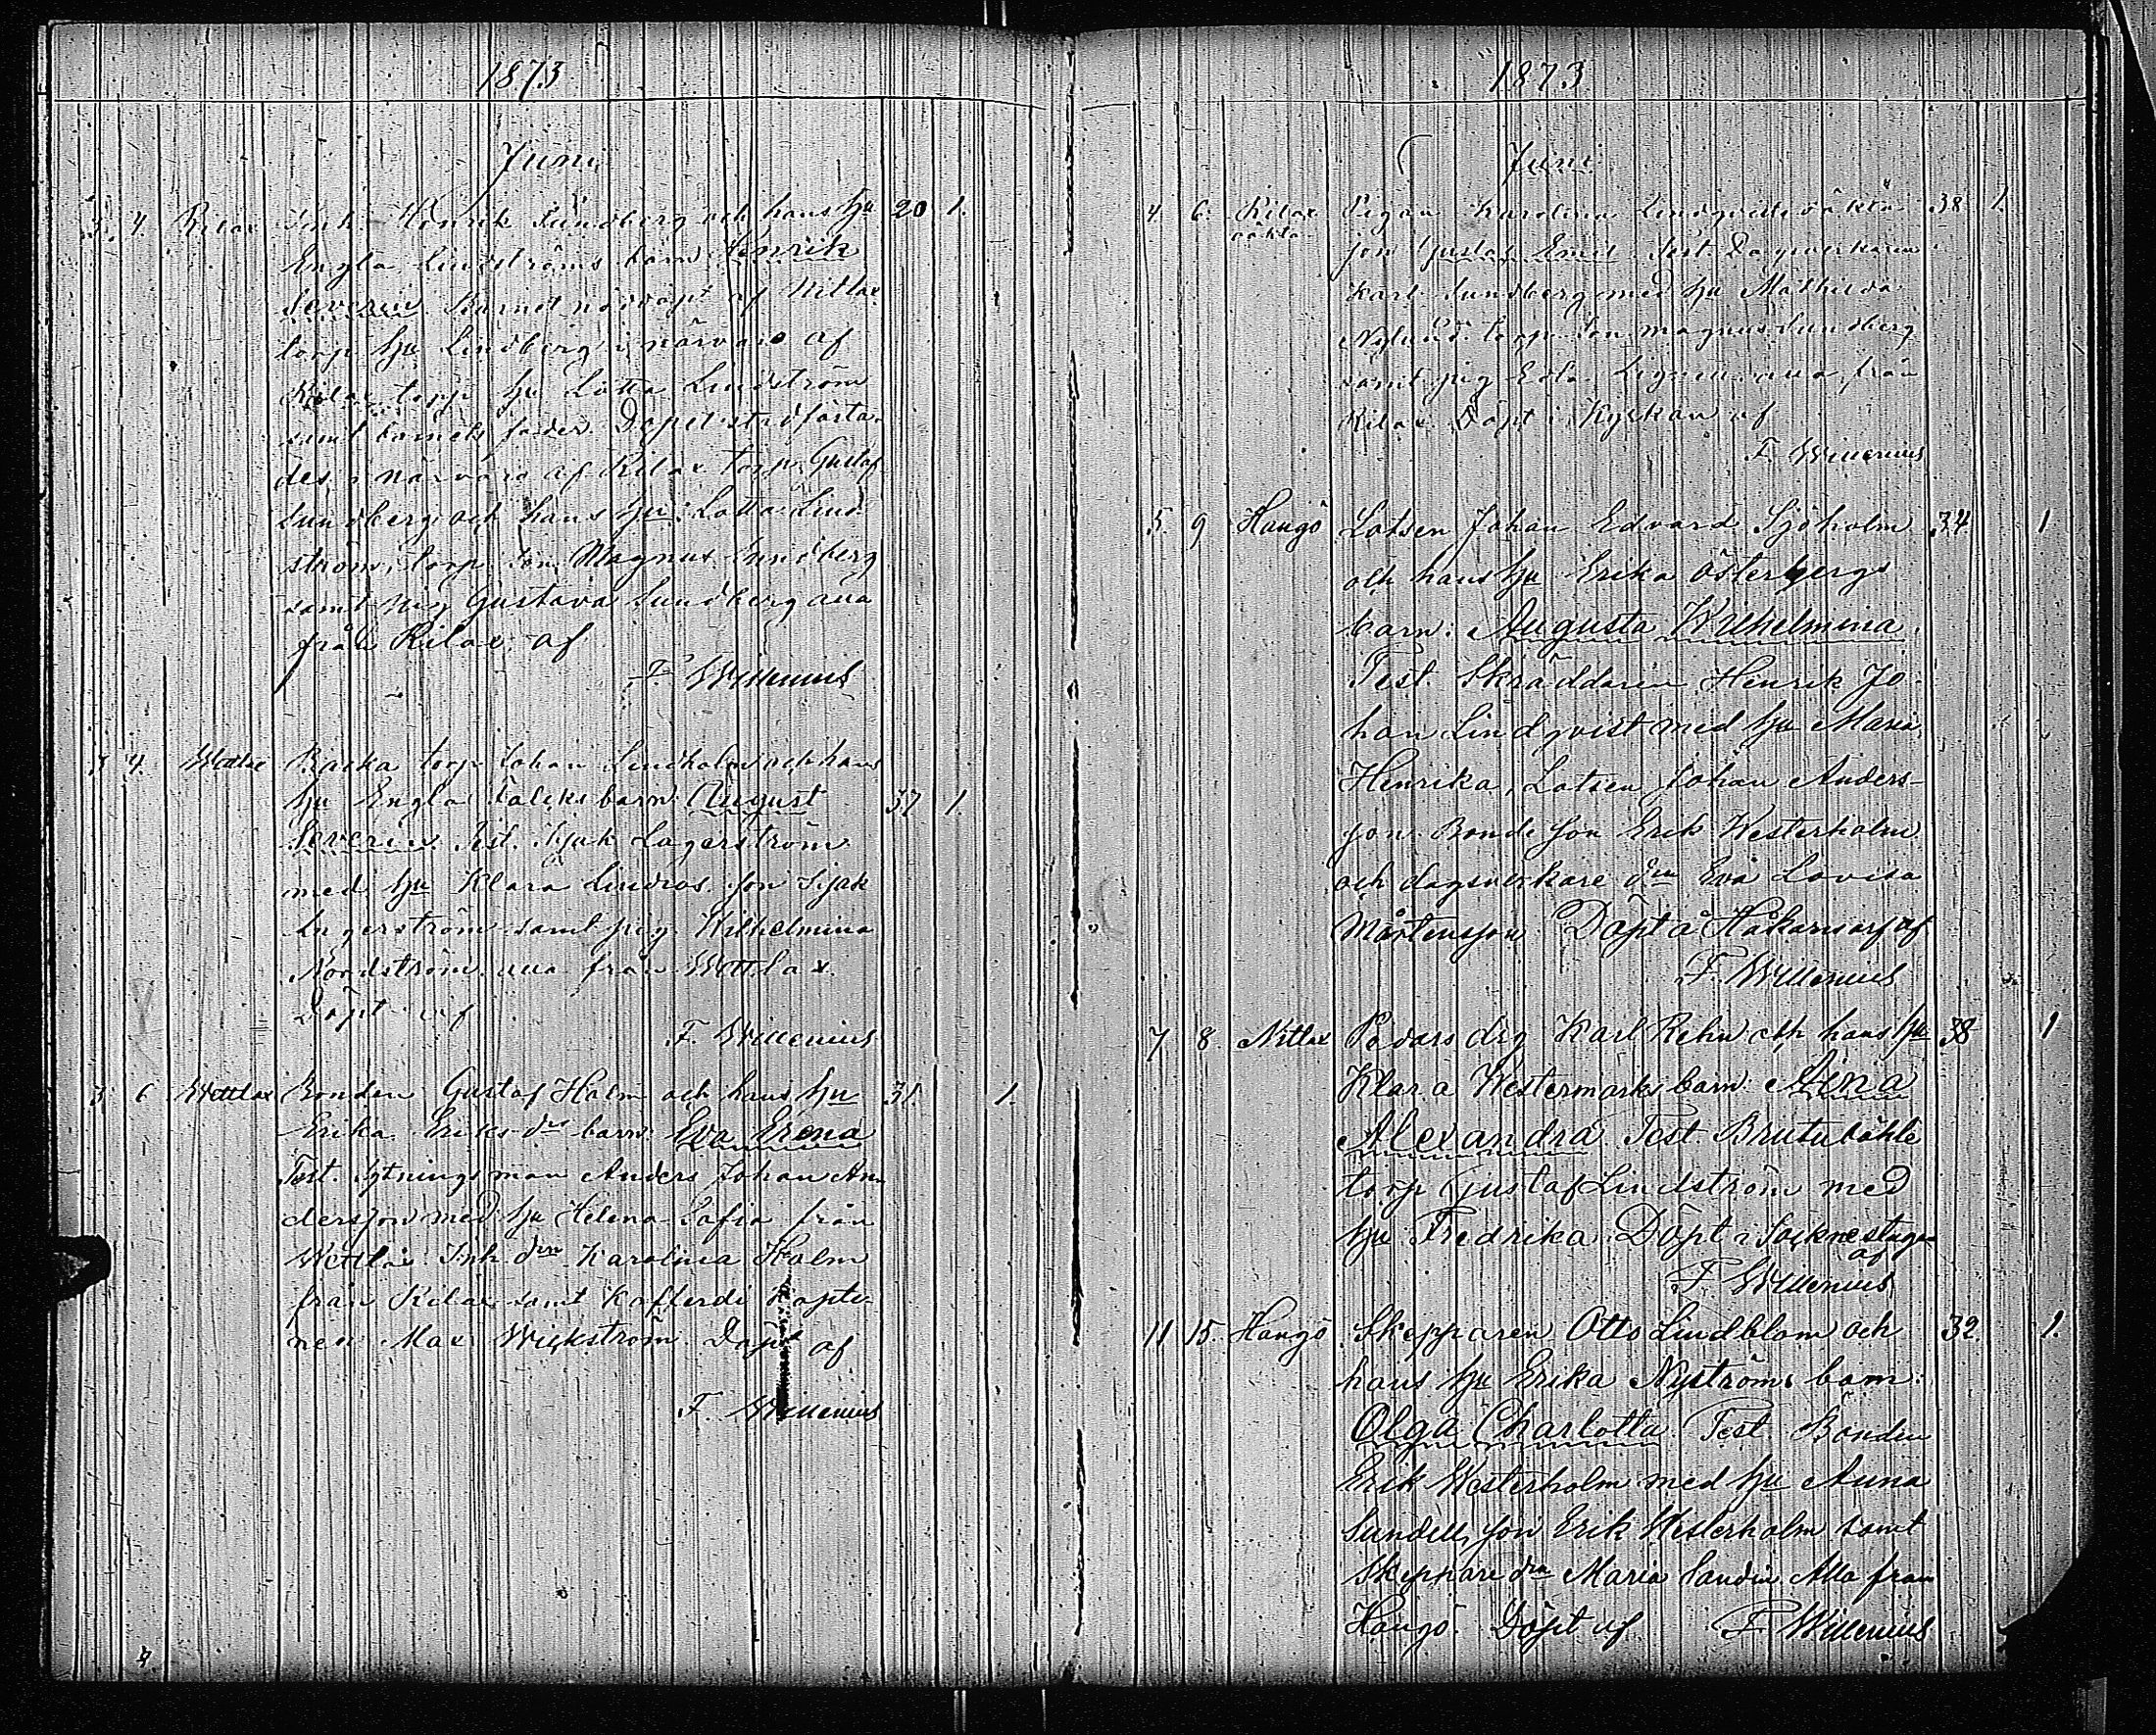 1873
Juni
3. 4. Rilax Inh. Henrik Sundberg och hans hu 20 1.
Engla Lindströms barn Henrik
Severin. Barnet nöddöpt af Nitlax
torp. hu Lindberg i närvaro af
Rilax torp hu Lotta Lindström
samt barnets fader. Dopet stadfästa-
des i närvaro af Rilax torp. Gustaf
Sundberg och hans hu Lotta Lind
ström, torp. son Magnus Sundberg
samt pig Gustava Sundberg alla
från Rilax, af
F. Willenius
3 4. Backa torp Johan Lindholm och hans
hu Engla barn August 37 1.
Severin Test. Lagerström
med hu Klara Lindros son
Lagerström samt pig. Wilhelmina
Nordström alla från Wettlax.
Döpt af
F. Willenius
3 6 Wettlax Bonden Gustaf Holm och hans hu 31. 1.
Erika Eriks dr barn Eva Erena
Test. Sytningsman Anders Johan An-
dersson med hu Helena Sofia från
Wettlax Inh. drn Karolina Holm
från Rilax samt Kofferdi kapte-
nen Max Wickström Döpt af
F. Willenius
1873
Juni
4. 6. Rilax Pigan Karolina Lindqvists oäkta 38 1.
oäkta son Gustaf Emil Test. Dagsverkaren
Karl Sundberg med hu Mathilda
Nylund. torp. son Magnus Sundberg
samt pig alla från
Rilax Döpt i Kyrkan af
F. Willenius
5. 9 Hangö Lotsen Johan Edvard Sjöholm 34. 1
och hans hu Erika Österbergs
barn: Augusta Wilhelmina.
Test Skräddaren Henrik Jo-
han Lindqvist med hu Maria
Henrika, Lotsen Johan Anders-
son Bonde son Erik Westerholm
och dagsverkare drn Eva Lovisa
Mårtensson Döpt å af
F. Willenius
7 8. Nitlax drg Karl Rehn och hans hu 38 1
Klara Westermarks barn Aina
Alexandra Test.
torp Gustaf Lindström med
hu Fredrika Döpt i Socknestugan
af
F. Willenius
11 15. Hangö Skepparen Otto Lindblom och 32. 1.
hans hu Erika Nyströms barn:
Olga Charlotta Test Bonden
Erik Westerholm med hu Anna
Sundell, son Erik Westerholm samt
Skeppare drn Maria Sandin Alla från
Hangö. Döpt af F Willenius